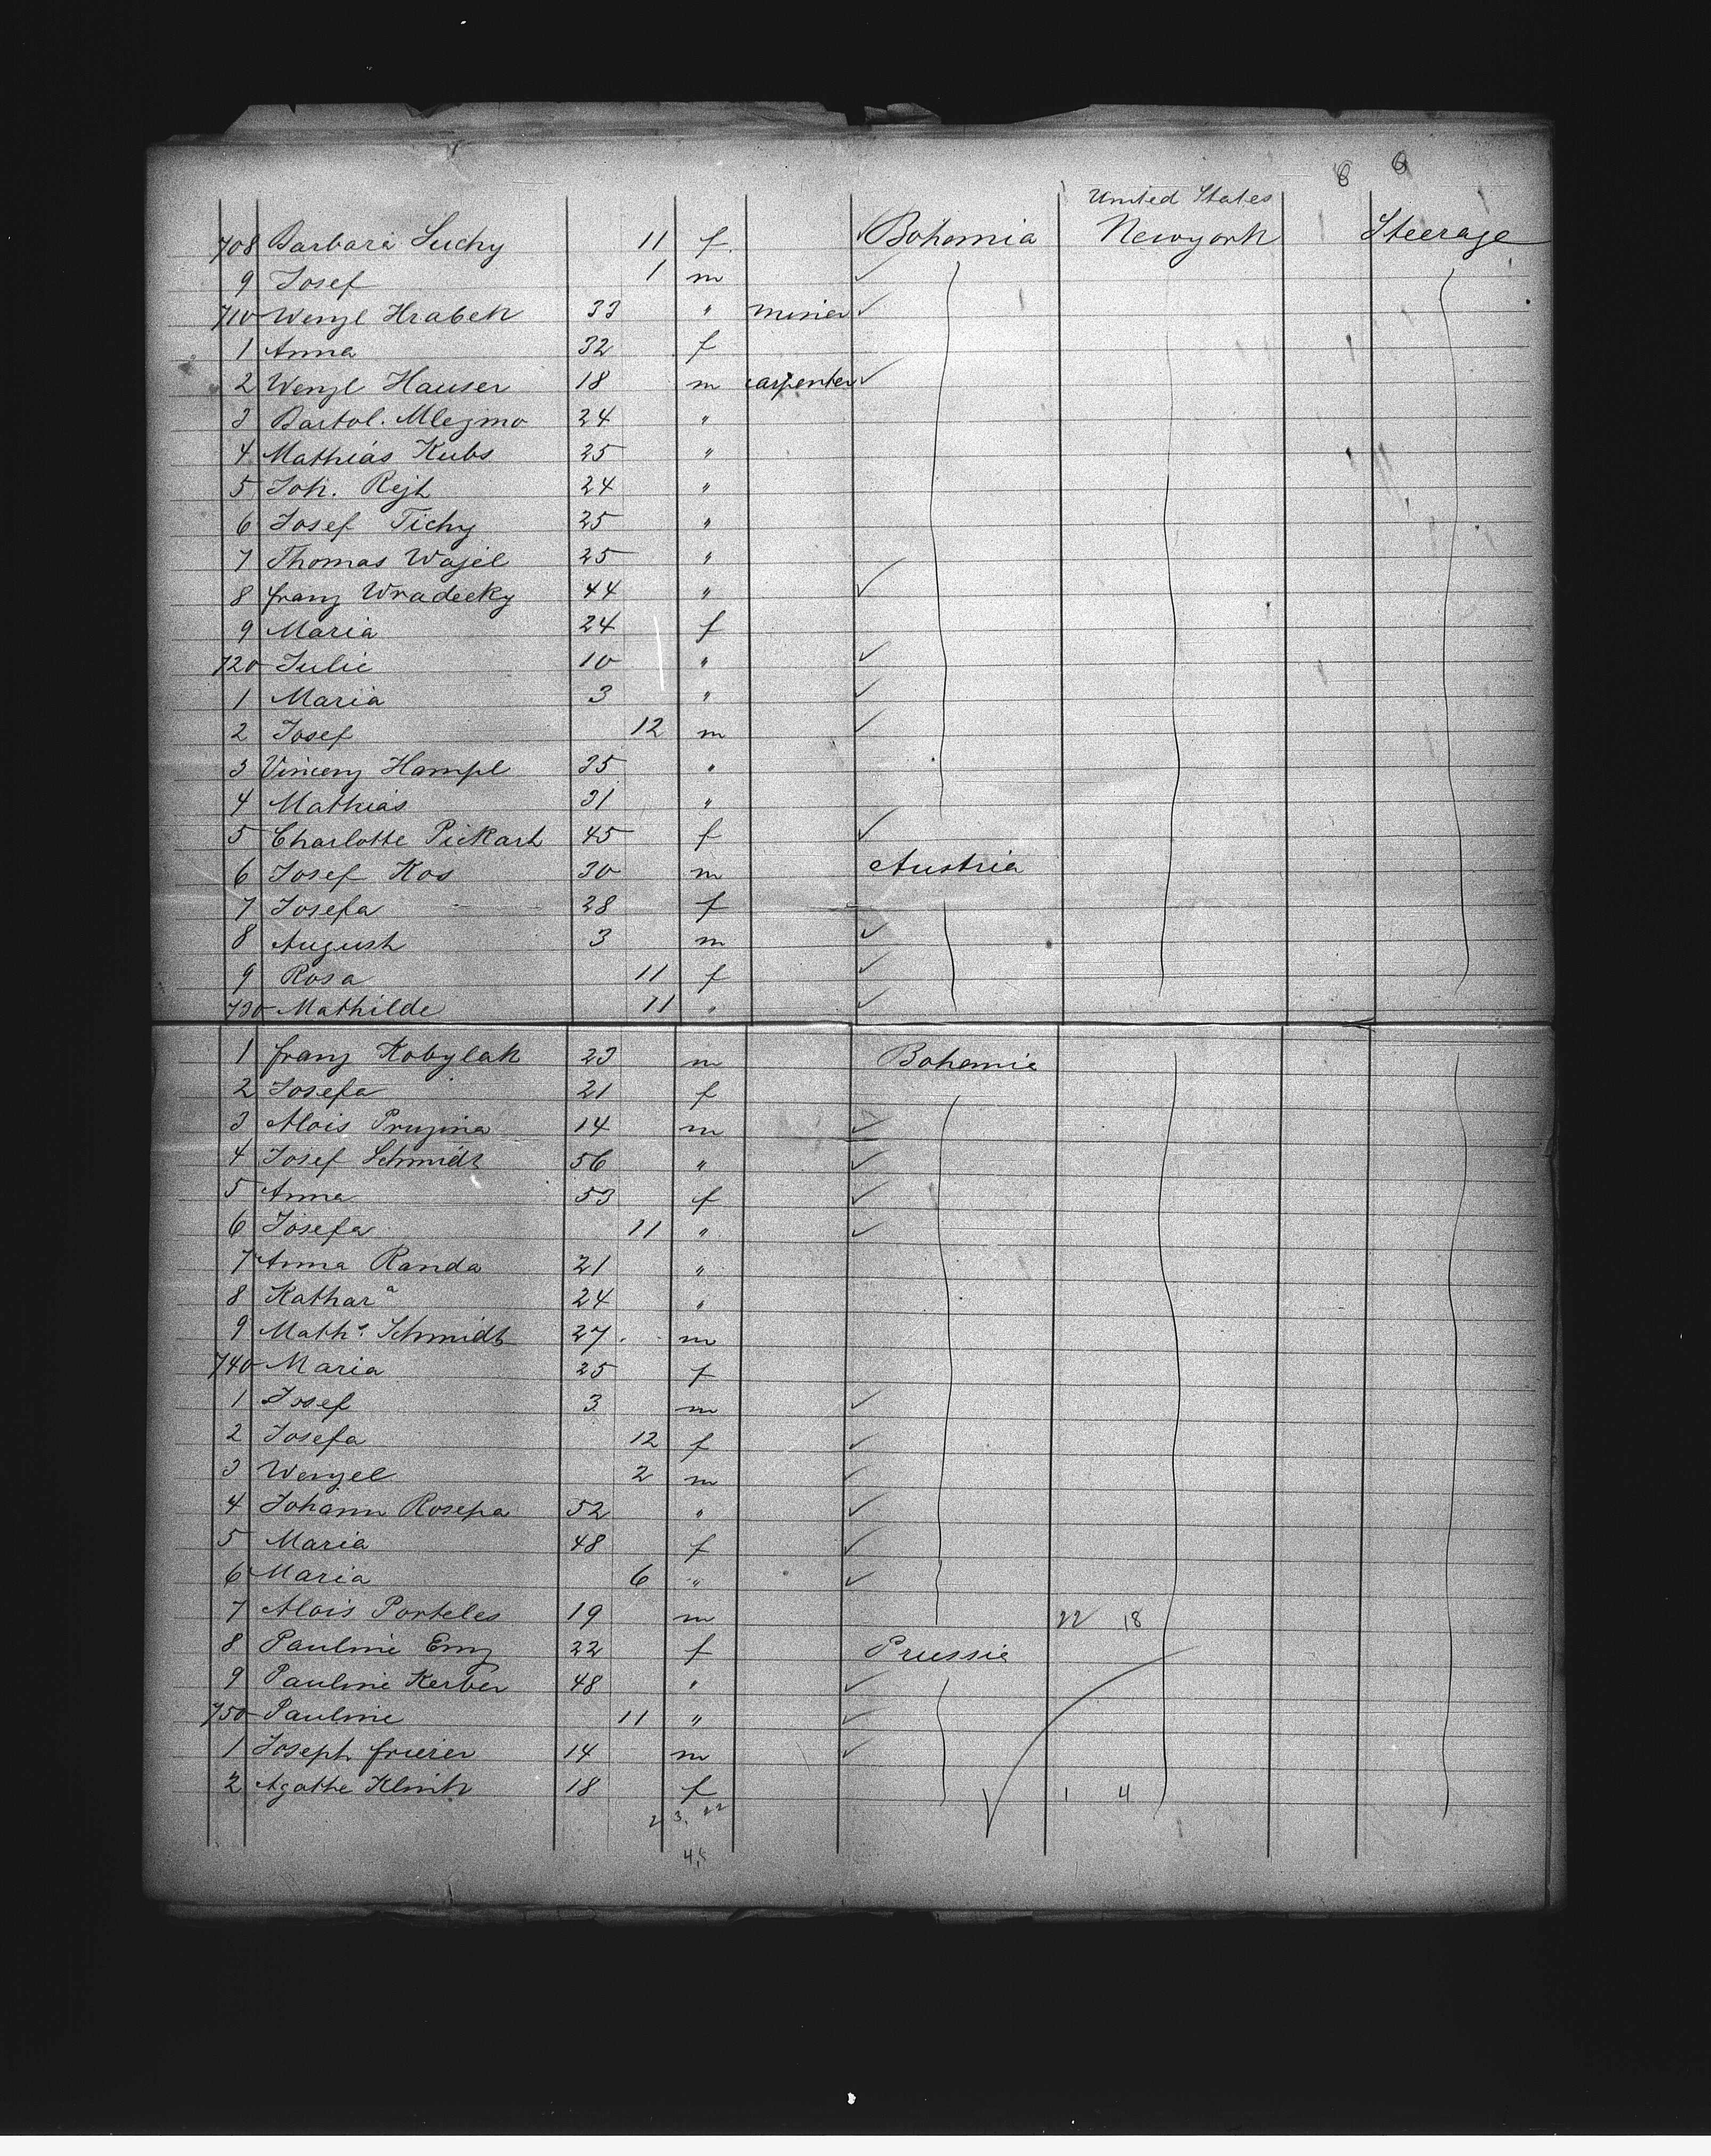 6 6
United States
708 Barbara Suchy 11 f. Bohemia Newyork Steerage
9 Josef 1 m
710 Wenzl Hrabek 33 " minier
1 Anna 32 f
2 Wenzl Hauser 18 m carpenter
3 Bartol. Mlezmo 24 "
4 Mathias Kubs 25 "
5 Joh. Rejt 24 "
6 Josef Tichy 25 "
7 Thomas Wajel 25 "
8 franz Wradecky 44 "
9 Maria 24 f
720 Julie 10 "
1 Maria 3 "
2 Josef 12 m
3 Vincenz Hampl 35 "
4 Mathias 31 "
5 Charlotte Pickart 45 f
6 Josef Kos 30 m Austria
7 Josefa 28 f
8 August 3 m
9 Rosa 11 f
730 Mathilde 11 "
1 franz Kobylak 23 m Bohemia
2 Josefa 21 f
3 Alois Pruzina 14 m
4 Josef Schmidt 56 "
5 Anna 53 f
6 Josefa 11 "
7 Anna Randa 21 "
8 Kathara 24 "
9 Maths. Schmidt 27 m
740 Maria 25 f
1 Josef 3 m
2 Josefa 12 f
3 Wenzel 2 m
4 Johann Rosepa 52 "
5 Maria 48 f
6 Maria 6 "
7 Alois Porteles 19 m 22 18
8 Pauline Emz 22 f Prussia
9 Pauline Kerber 48 "
750 Pauline 11 "
1 Joseph frierer 14 m
2 Agathe Klink 18 f 1 4
2 3. 22